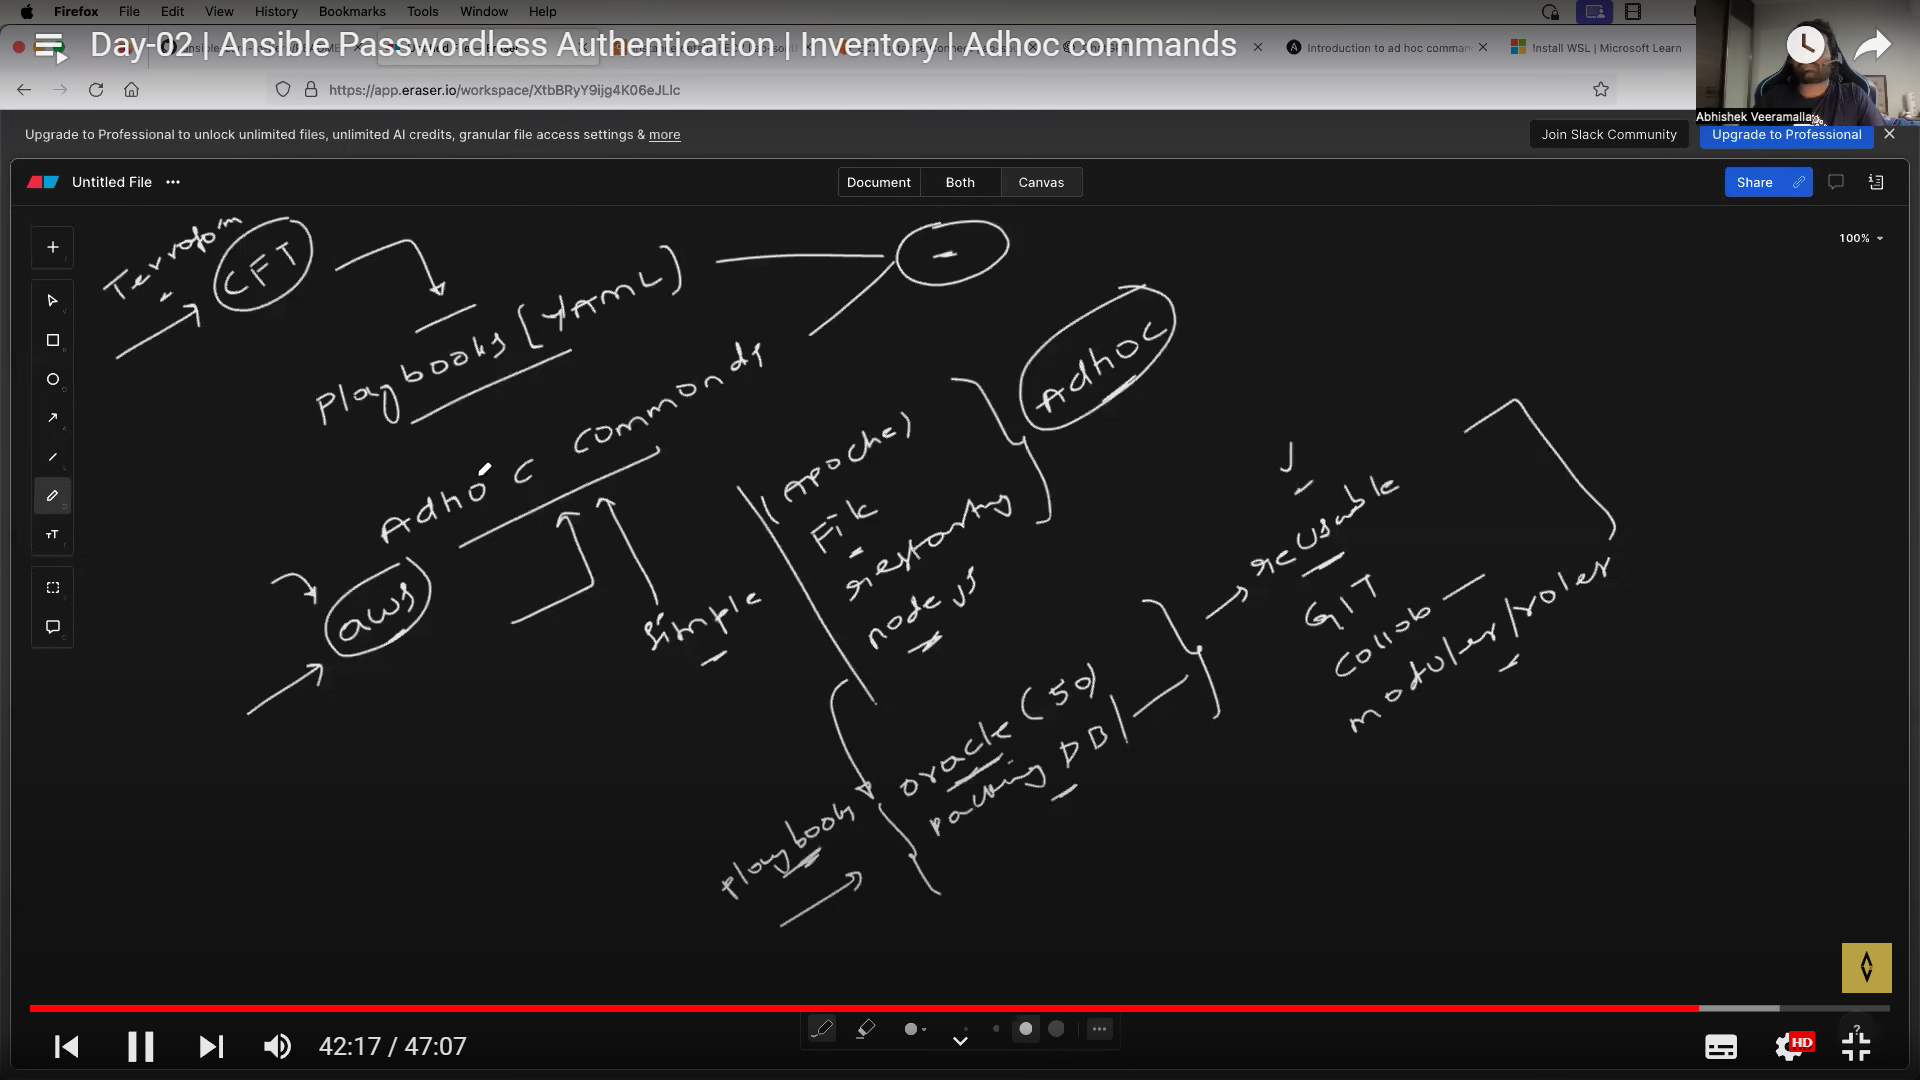 Firefox File Edit View History Bookmarks Tools Window Help
Day-02 | Ansible Passwordless Authentication | Inventory | Adhoc commands
Introduction to ad hoc comman
Install WSL | Microsoft Learn
https://app.eraser.io/workspace/XtbBRyY9ijg4K06eJLlc
Abhishek Veeramalla
Upgrade to Professional to unlock unlimited files, unlimited AI credits, granular file access settings & more
Join Slack Community
Upgrade to Professional
Untitled File
Document Both Canvas
Share
100%
Terraform
CFT
playbooks [YAML]
Adhoc commands
Adhoc
(Apache)
File
restarting
node js
aws
simple
J
reusable
GIT
Collab
modules/roles
oracle (50)
DB
playbook
42:17 / 47:07
HD